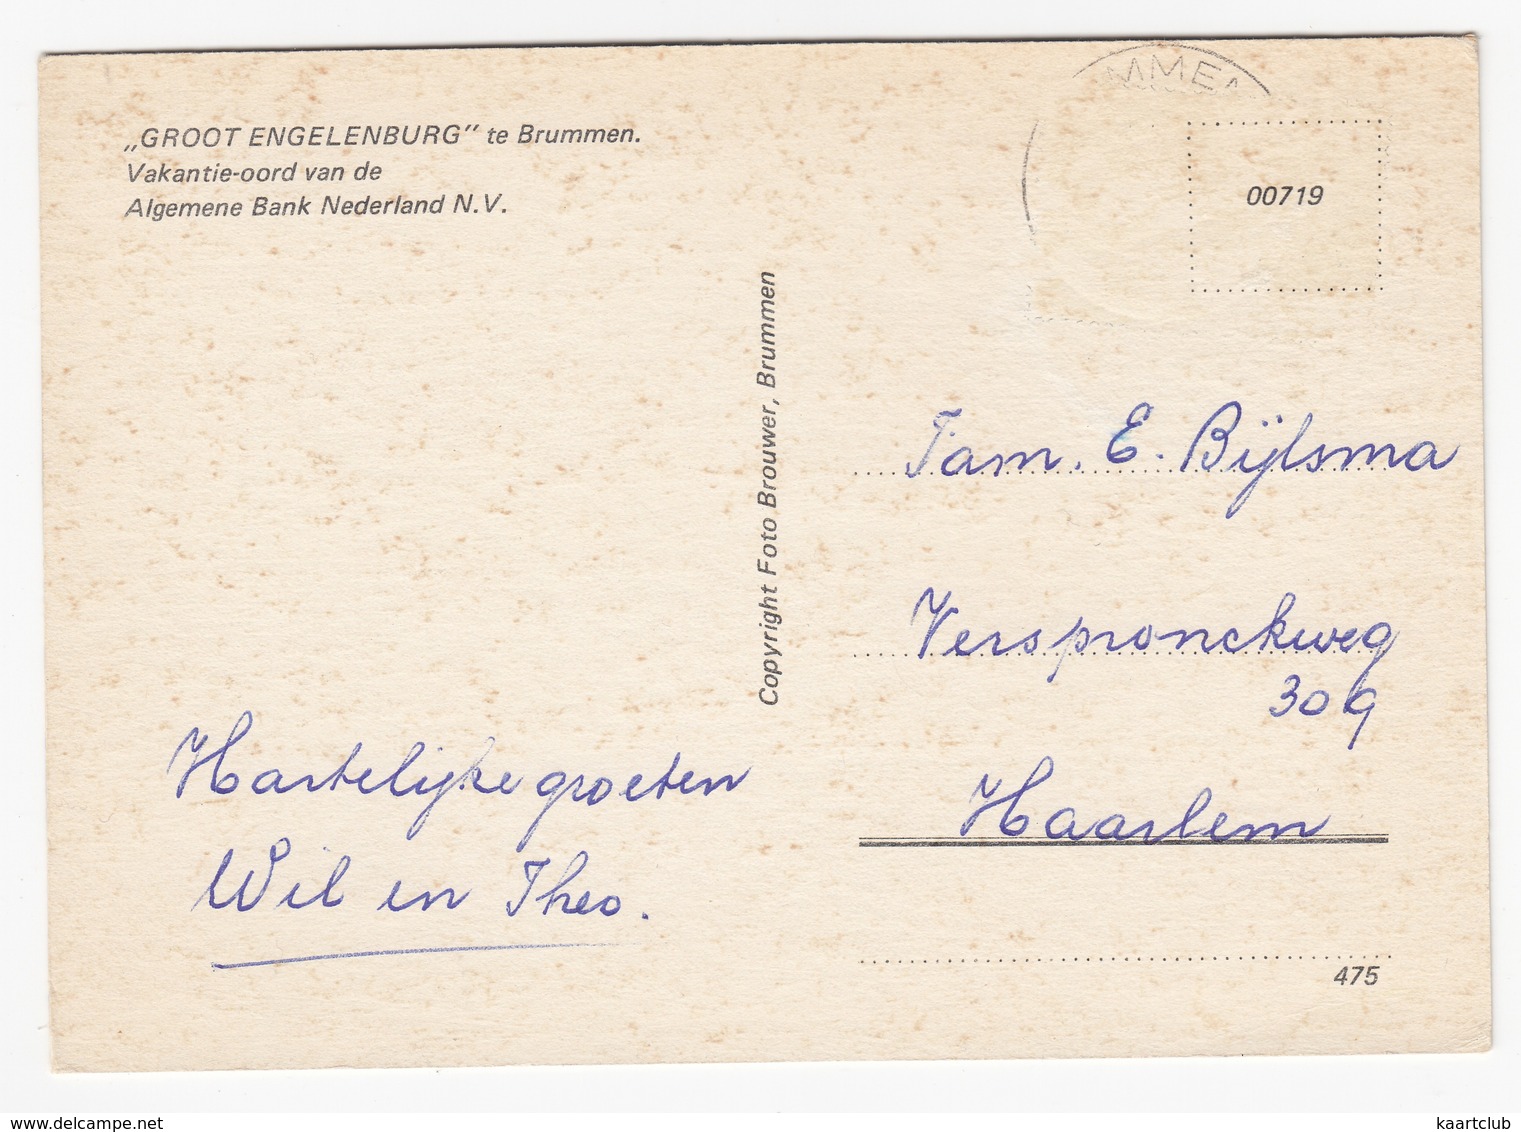 „GROOT ENGELENBURG” te Brummen.
Vakantie-oord van de
Algemene Bank Nederland N.V.
MMEN
00719
Copyright Foto Brouwer, Brummen
Fam. E. Bijlsma
Verspronckweg
309
Haarlem
Hartelijke groeten
Wil en Theo.
475
delcampe.net
kaartclub